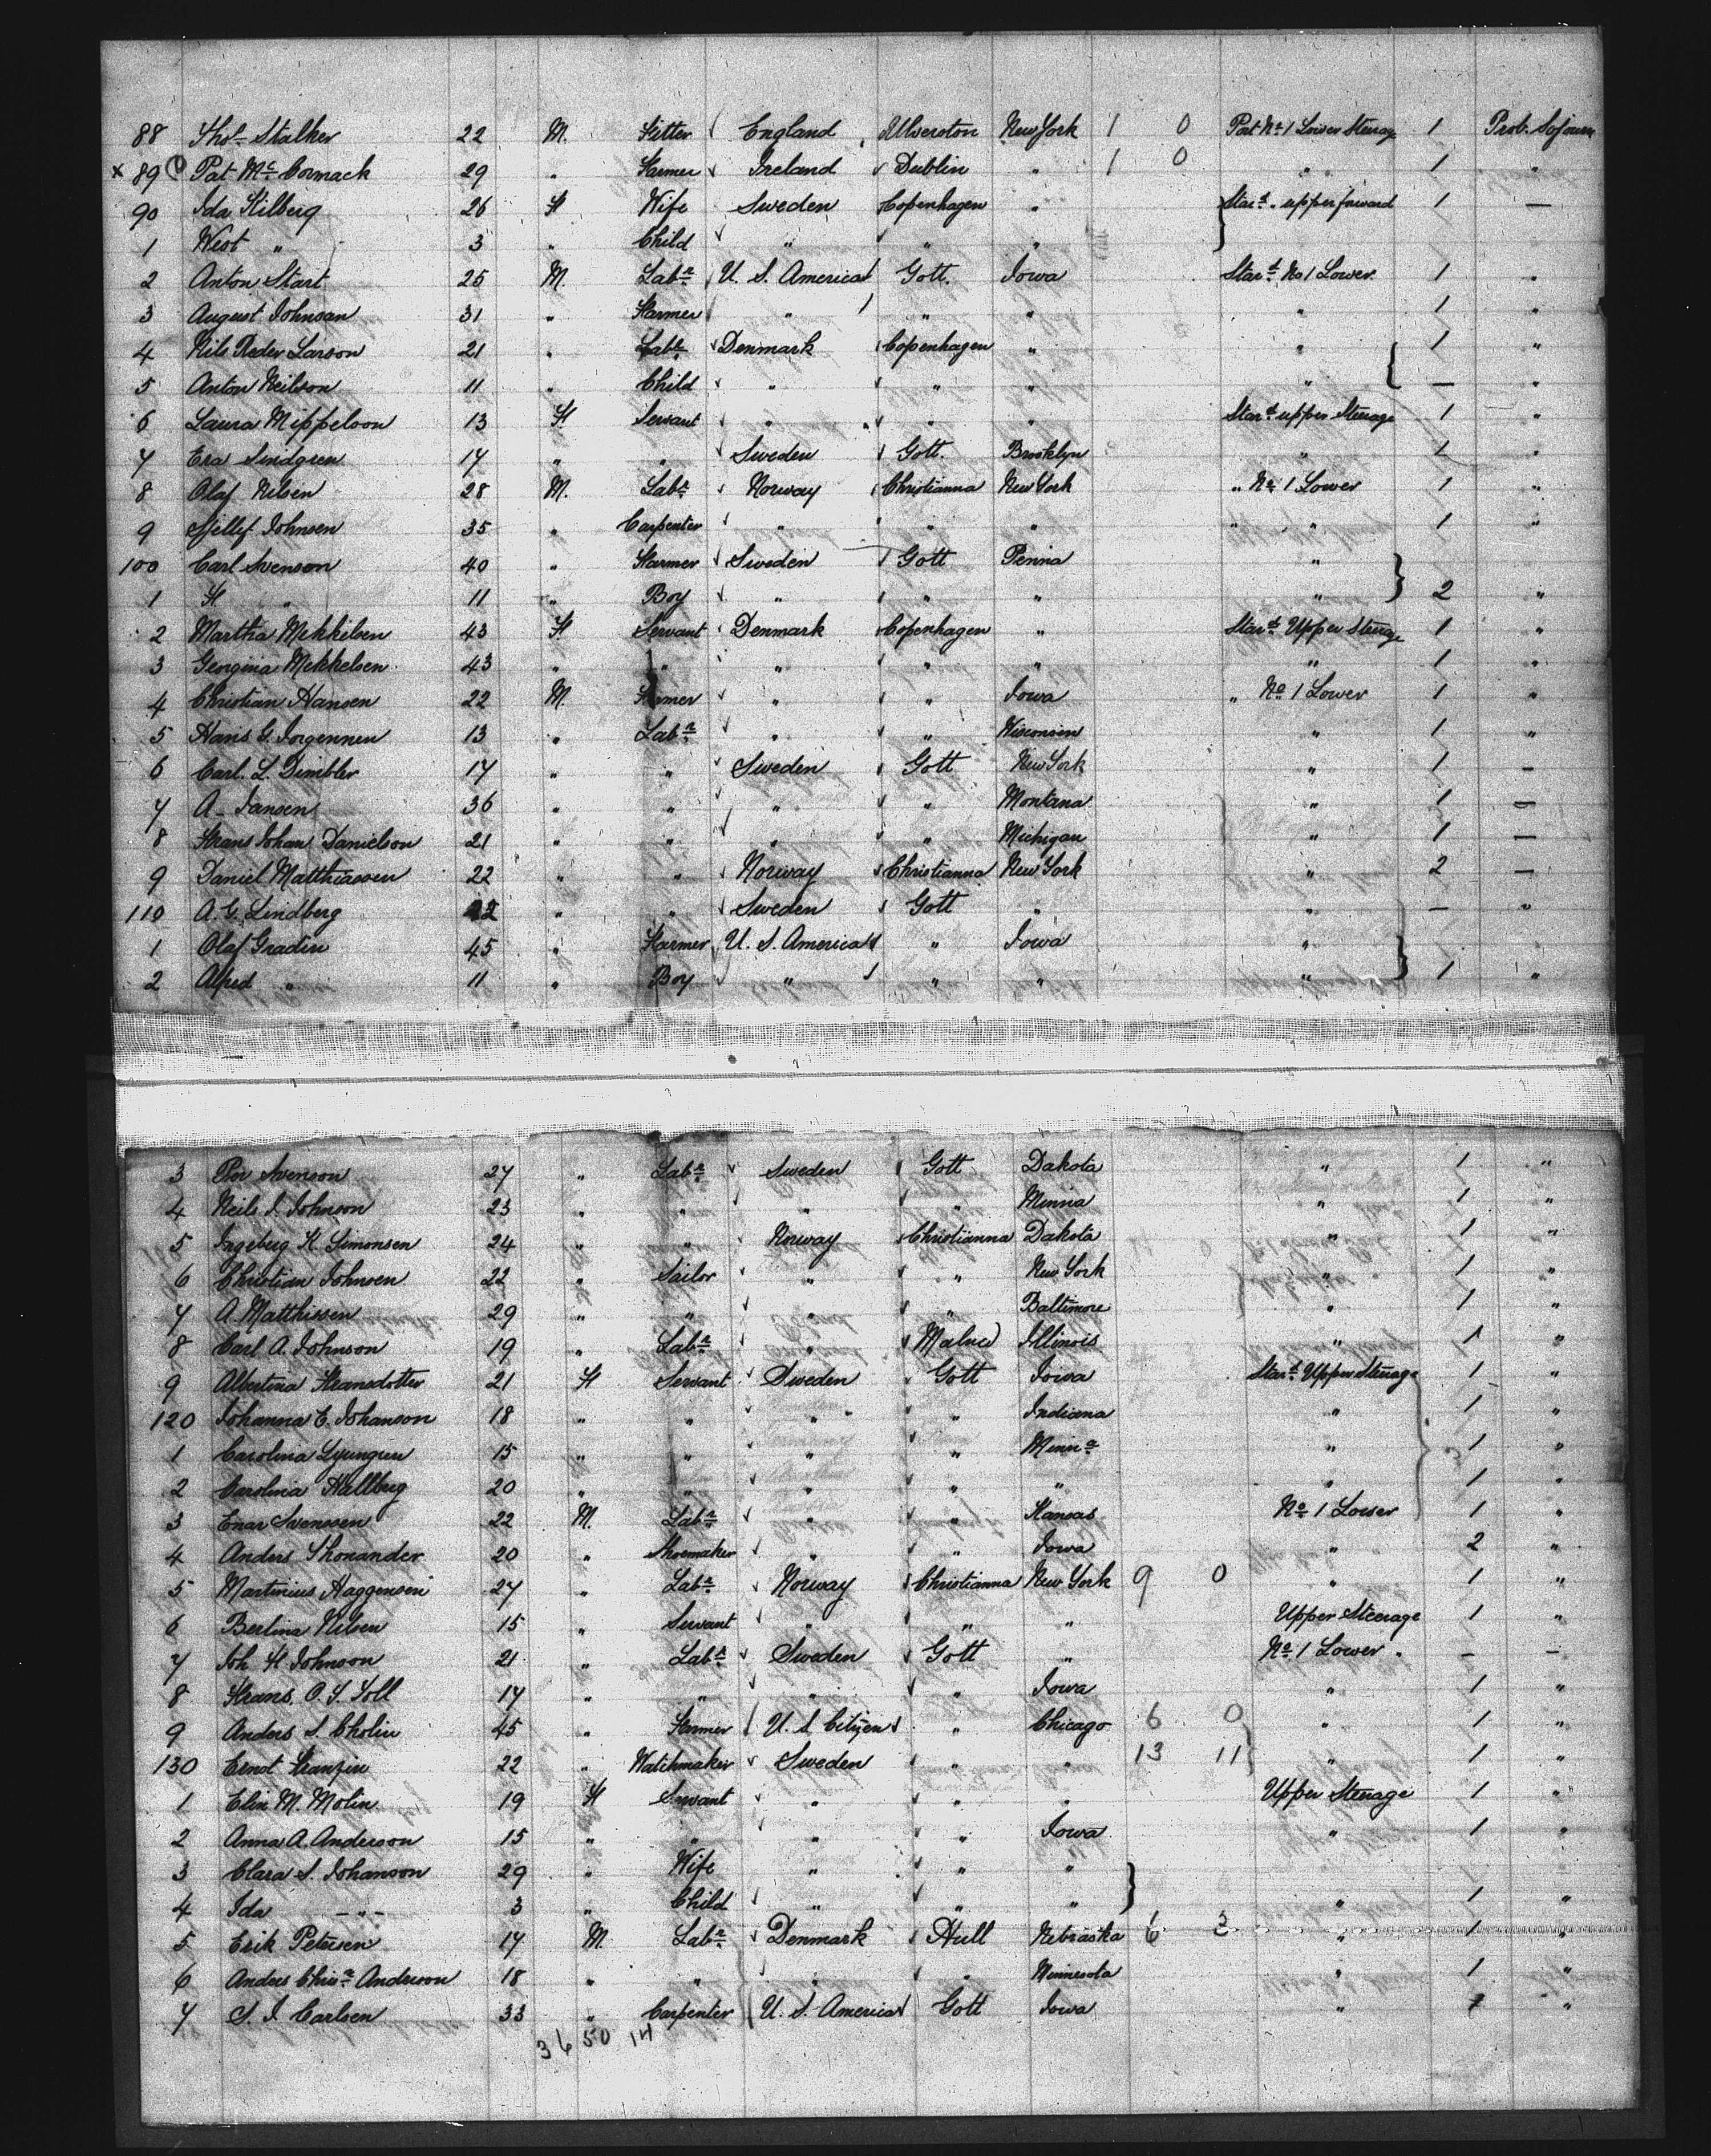 88 Thos Stalker 22 M. Fitter England Ulverston New York 1 0 Port No 1 Lower Steerage 1 Prob. Sojourn
x 89 Pat McCormack 29 " Farmer Ireland Dublin " 1 0 " 1 "
90 Ida Kilberg 26 F Wife Sweden Copenhagen " Stard " upper forward 1 —
1 West " 3 " Child " " "
2 Anton Start 25 M. Labr U. S. America Gott. Iowa Stard No 1 Lower 1 "
3 August Johnsan 31 " Farmer " " " " 1 "
4 Nils Peder Larson 21 " Labr Denmark Copenhagen " " 1 "
5 Anton Neilson 11 " Child " " " " — "
6 Laura Mippelson 13 F Servant " " " Stard upper Steerage 1 "
7 Era Lindgren 17 " " Sweden Gott. Brooklyn " 1 "
8 Olaf Nilsen 28 M. Labr Norway Christianna New York " No 1 Lower 1 "
9 Johnsen 35 " Carpenter " " " " " 1 "
100 Carl Svenson 40 " Farmer Sweden Gott Penna "
1 F " 11 " Boy " " " " 2 "
2 Martha Mekkelsen 43 F Servant Denmark Copenhagen " Stard Upper Steerage 1 "
3 Georgina Mekkelsen 43 " " " " " " 1 "
4 Christian Hansen 22 M. Farmer " " Iowa " No 1 Lower 1 "
5 Hans G. Jorgennen 13 " Labr " " Wisconsin " 1 "
6 Carl. L. Dimbler 17 " " Sweden Gott New York " 1 —
7 A- Jansen 36 " " " " Montana " 1 —
8 Frans Johan Danielson 21 " " " " Michigan " 1 —
9 Daniel Matthiassen 22 " " Norway Christianna New York " 2 —
110 A. G. Lindberg 22 " " Sweden Gott " " — "
1 Olaf Gradin 45 " Farmer U. S. America " Iowa "
2 Alfred " 11 " Boy " " " " 1 "
3 Svenson 27 " Labr Sweden Gott Dakota " 1 "
4 Neils J. Johnson 23 " " " " Minna " 1 "
5 Ingeberg K. Simonsen 24 " " Norway Christianna Dakota " 1 "
6 Christian Johnsen 22 " Sailor " " New York " 1 "
7 A. Matthissen 29 " " " " Baltimore " 1 "
8 Carl A. Johnson 19 " Labr " Malmo Illinois " 1 "
9 Albertina Fransdotter 21 F Servant Sweden Gott Iowa Stard Upper Steerage 1 "
120 Johanna E. Johanson 18 " " " " Indiana " 1 "
1 Carolina Ljungren 15 " " " " Minna " 1 "
2 Carolina Hallberg 20 " " " " " " 1 "
3 Enar Svenssen 22 M. Labr " " Kansas No 1 Lower 1 "
4 Anders Thonander 20 " Shoemaker " " Iowa " 2 "
5 Martinius Haggensen 27 " Labr Norway Christianna New York 9 0 " 1 "
6 Berlina Nilsen 15 " Servant " " " Upper Steerage 1 "
7 Joh. F Johnson 21 " Labr Sweden Gott " No 1 Lower " — —
8 Frans, O. S. Toll 17 " " " " Iowa " 1 "
9 Anders S. Cholin 45 " Farmer U. S. Citizen " Chicago 6 0 " 1 "
130 Ernst Franzin 22 " Watchmaker Sweden " " 13 11 " 1 "
1 Elin M. Molin 19 F Servant " " " Upper Steerage 1 "
2 Anna A. Anderson 15 " " " " Iowa " 1 "
3 Clara S. Johanson 29 " Wife " " "
4 Ida —"— 3 " Child " " " " 1 "
5 Erik Petersen 17 M. Labr Denmark Hull Nebraska 6 3 " 1 "
6 Anders Chrisn Anderson 18 " " " " Minnesota " 1 "
7 S. J. Carlsen 33 " Carpenter U. S. America Gott Iowa " 1 "
36 50 14